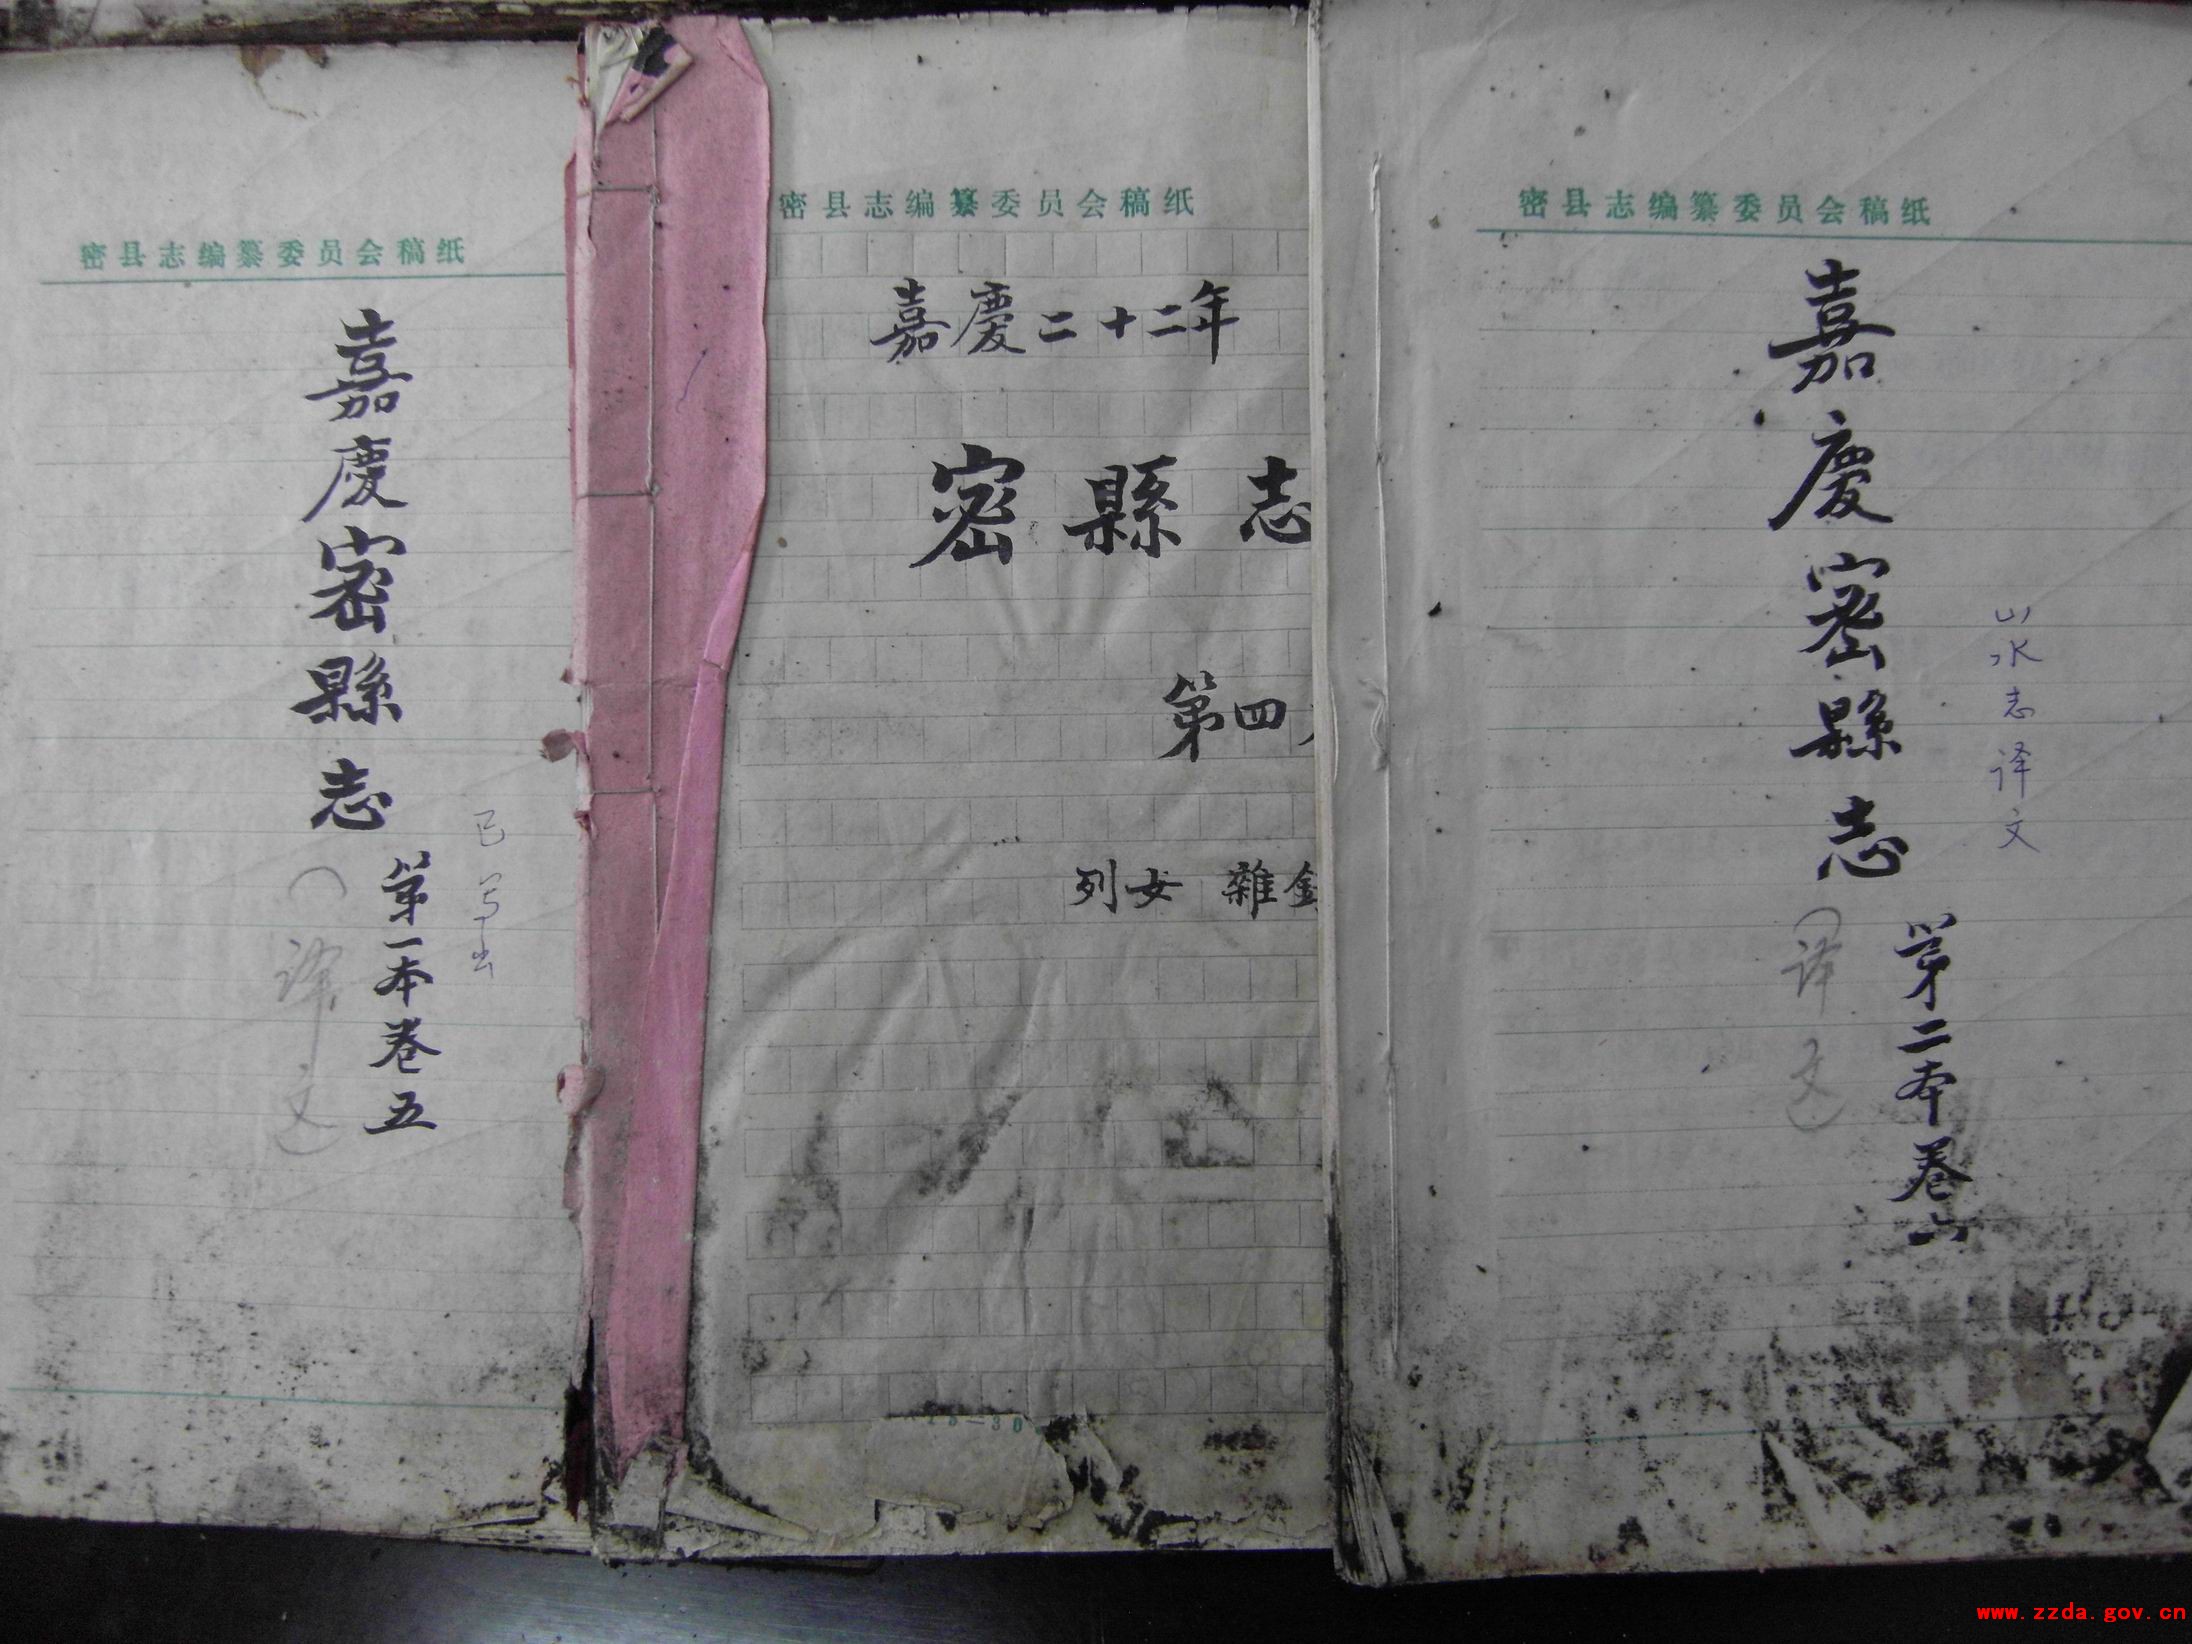 密县志编纂委员会稿纸
嘉慶密縣志
第一本卷五
(译文)
密县志编纂委员会稿纸
嘉慶二十二年
密縣志
第四
列女 雜
密县志编纂委员会稿纸
嘉慶密縣志
山水志译文
第二本卷
(译文)
www.zzda.gov.cn